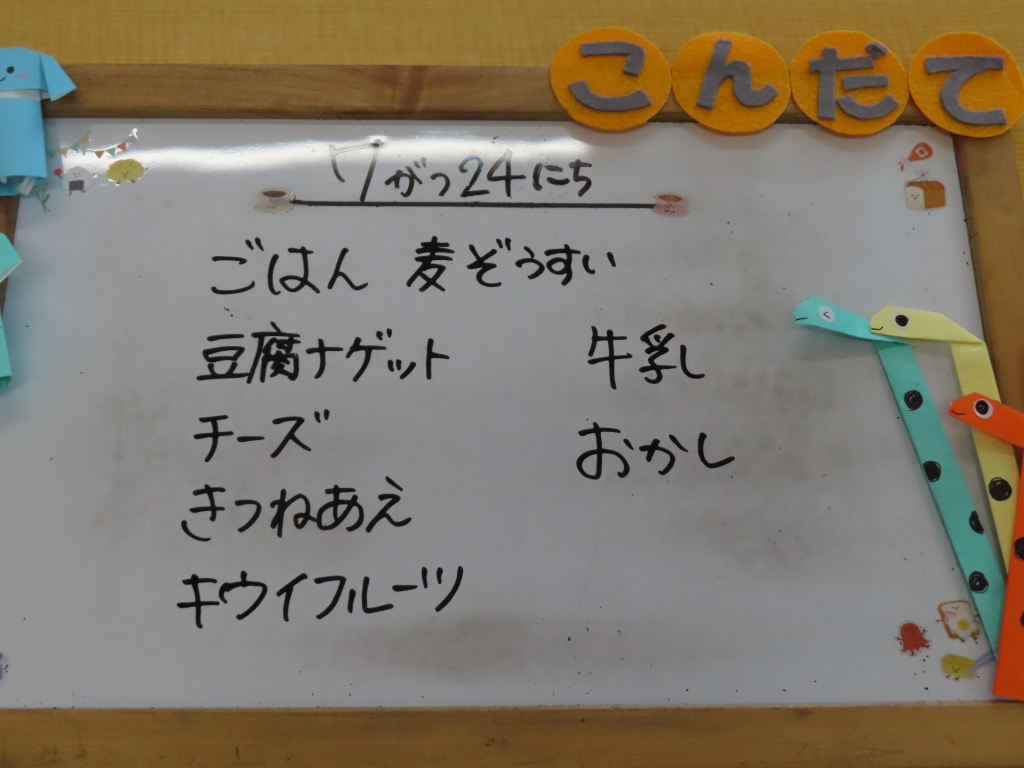 こんだて
7がつ24にち
ごはん 麦ぞうすい
豆腐ナゲット
チーズ
きつねあえ
キウイフルーツ
牛乳
おかし